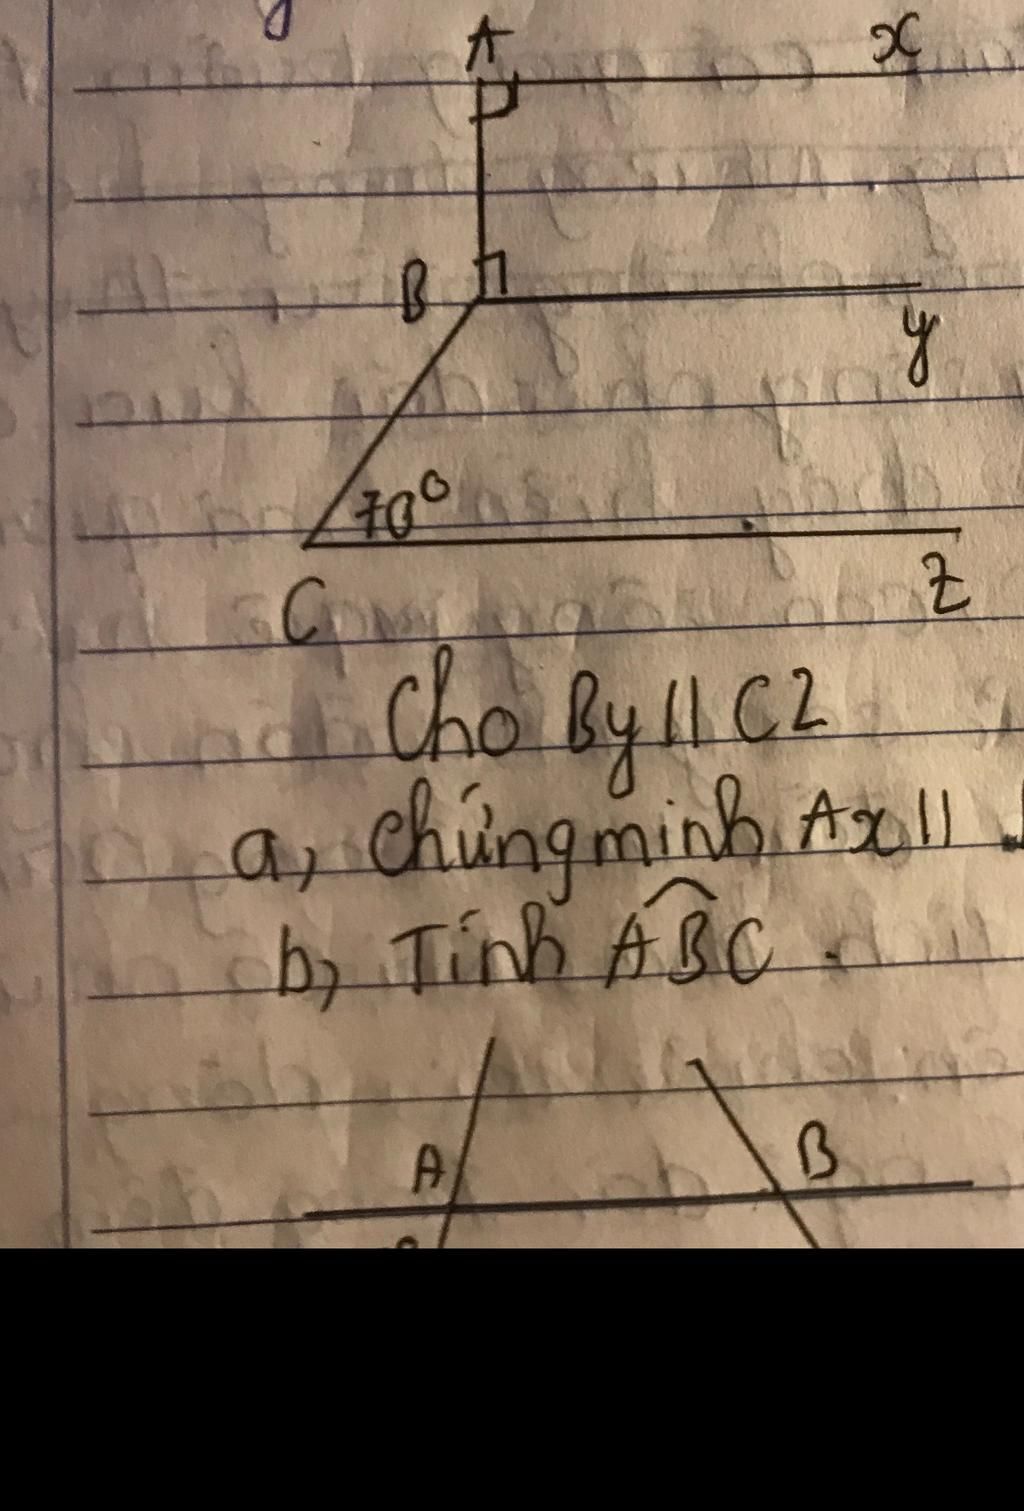 A x
B
y
70°
C z
Cho By || CZ
a, chứng minh Ax ||
b, Tính ABC.
A B